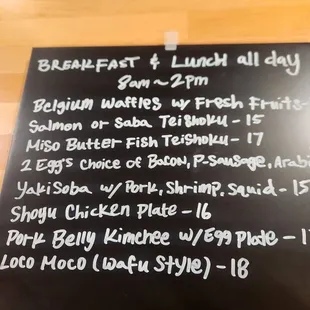 BREAKFAST & Lunch all day
8am~2pm
Belgium Waffles w/ Fresh Fruits-
Salmon or Saba Teishoku - 15
Miso Butter Fish Teishoku - 17
2 Egg's Choice of Bacon, P-Sausage, Arabi
Yakisoba w/ Pork, Shrimp, Squid - 15
Shoyu Chicken Plate - 16
Pork Belly Kimchee w/Egg Plate - 1
Loco Moco (Wafu Style) - 18